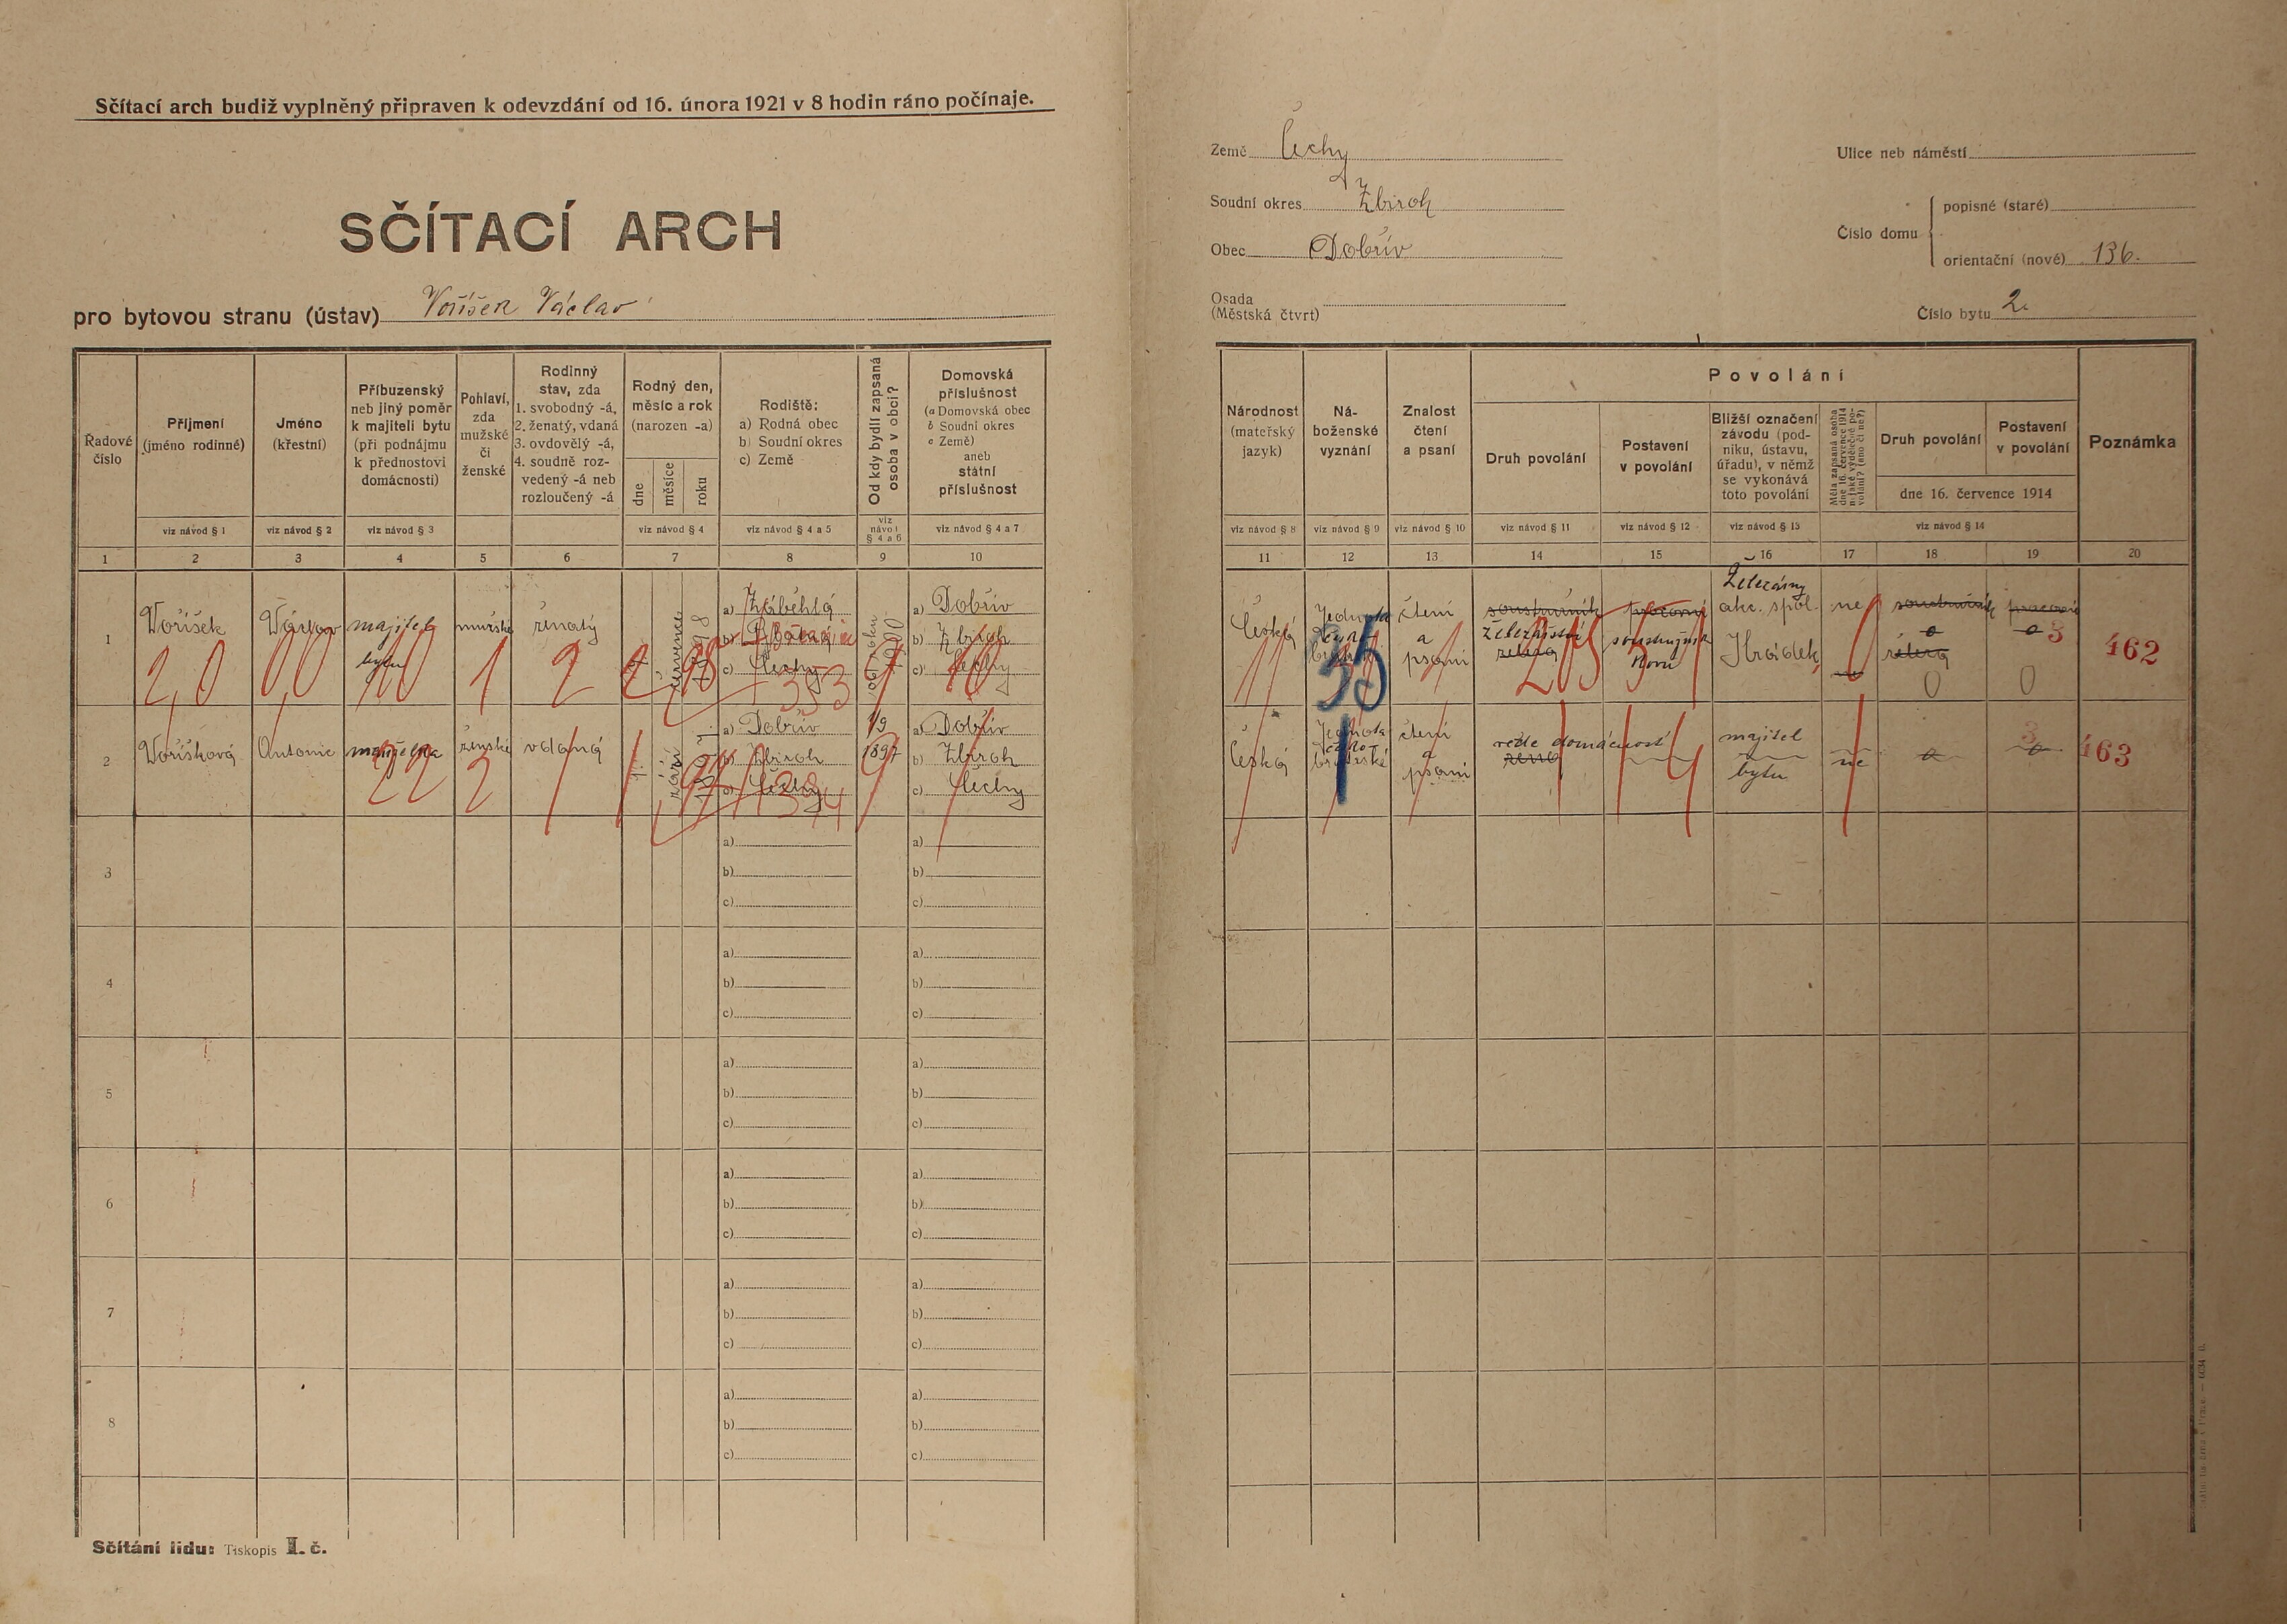 Sčítací arch budiž vyplněný připraven k odevzdání od 16. února 1921 v 8 hodin ráno počínaje.
SČÍTACÍ ARCH
pro bytovou stranu (ústav) Voříšek Václav
Země Čechy
Soudní okres Zbiroh
Obec Dobřív
Osada
(Městská čtvrt)
Ulice neb náměstí
Číslo domu
popisné (staré)
orientační (nové) 136.
Číslo bytu 2.
Řadové
číslo
Příjmení
(jméno rodinné)
viz návod § 1
Jméno
(křestní)
viz návod § 2
Příbuzenský
neb jiný poměr
k majiteli bytu
(při podnájmu
k přednostovi
domácnosti)
viz návod § 3
Pohlaví,
zda
mužské
či
ženské
Rodinný
stav, zda
1. svobodný -á,
2. ženatý, vdaná
3. ovdovělý -á,
4. soudně roz-
vedený -á neb
rozloučený -á
Rodný den,
měsíc a rok
(narozen -a)
dne
měsíce
roku
viz návod § 4
Rodiště:
a) Rodná obec
b) Soudní okres
c) Země
viz návod § 4 a 5
Od kdy bydlí zapsaná
osoba v obci?
viz
návod
§ 4 a 6
Domovská
příslušnost
(a Domovská obec
b Soudní okres
c Země)
aneb
státní
příslušnost
viz návod § 4 a 7
Národnost
(mateřský
jazyk)
viz návod § 8
Ná-
boženské
vyznání
viz návod § 9
Znalost
čtení
a psaní
viz návod § 10
Povolání
Druh povolání
viz návod § 11
Postavení
v povolání
viz návod § 12
Bližší označení
závodu (pod-
niku, ústavu,
úřadu), v němž
se vykonává
toto povolání
viz návod § 13
Měla zapsaná osoba
dne 16. července 1914
nějaké výdělečné po-
volání? (ano či ne?)
Druh povolání
Postavení
v povolání
dne 16. července 1914
viz návod § 14
Poznámka
1 2 3 4 5 6 7 8 9 10
11 12 13 14 15 16 17 18 19 20
1 Voříšek Václav majitel bytu mužské ženatý července
a)
b)
c) Čechy
od roku 1920
a) Dobřív
b) Zbiroh
c) Čechy
Česká Jednota čtení a psaní
soustružník
železářství
soustružník
Železárny
akc. spol.
Hrádek
ne
0 0
462
2 Voříšková Antonie manželka ženské vdaná září
a) Dobřív
b) Zbiroh
c) Čechy
1/9
1897
a) Dobřív
b) Zbiroh
c) Čechy
Česká Jednota čtení a psaní
vede domácnost
majitel
bytu
ne
463
3
a)
b)
c)
a)
b)
c)
4
a)
b)
c)
a)
b)
c)
5
a)
b)
c)
a)
b)
c)
6
a)
b)
c)
a)
b)
c)
7
a)
b)
c)
a)
b)
c)
8
a)
b)
c)
a)
b)
c)
Sčítání lidu: Tiskopis I. č.